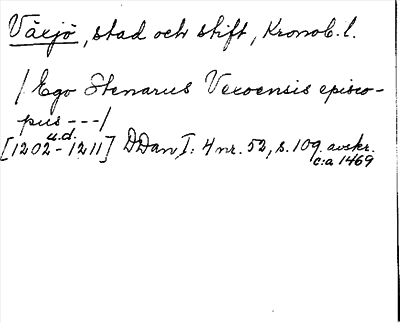 Växjö, stad och stift, Kronob. l.
/ Ego Stenarus Vexoensis episco-
pus --- /
u.d.
[1202-1211] DDan I: 4 nr. 52, s. 109. avskr.
c:a 1469